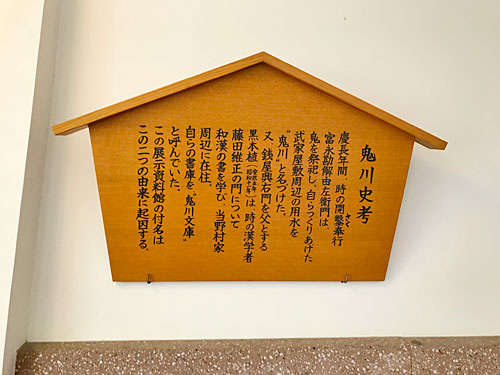 鬼川史考
慶長年間、時の開鑿奉行
富永勘解由左衛門は、
鬼を祭祀し、自らつくりあけた
武家屋敷周辺の用水を
“鬼川”と名づけた。
又、銭屋五兵衛門を父とする
黒本植は、時の漢学者
藤田維正の門について
和漢の書を学び、当野村家
周辺に在住、
自らの書庫を“鬼川文庫”
と呼んでいた。
この展示資料館の付名は
この二つの由来に起因する。